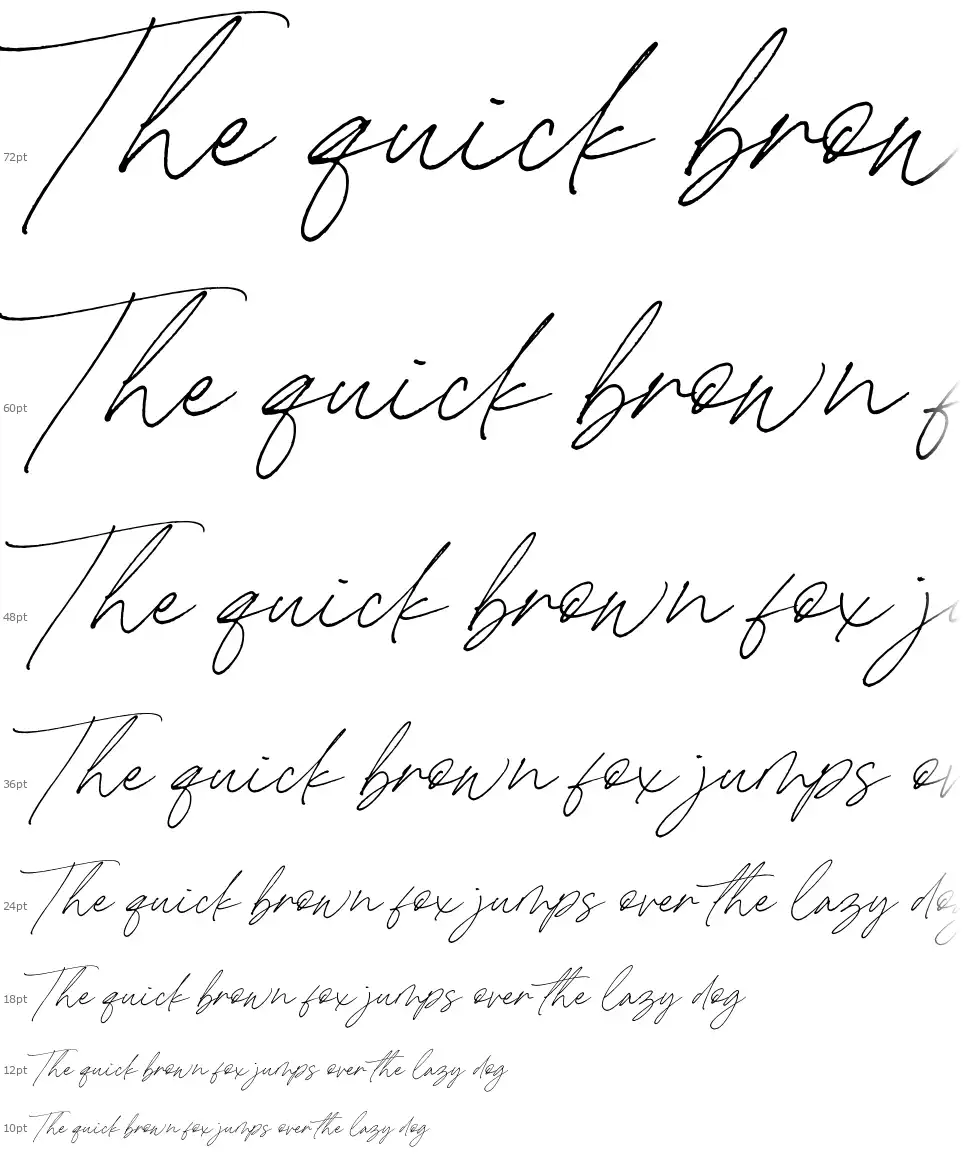 72pt The quick brown
60pt The quick brown f
48pt The quick brown fox ju
36pt The quick brown fox jumps ov
24pt The quick brown fox jumps over the lazy dog
18pt The quick brown fox jumps over the lazy dog
12pt The quick brown fox jumps over the lazy dog
10pt The quick brown fox jumps over the lazy dog